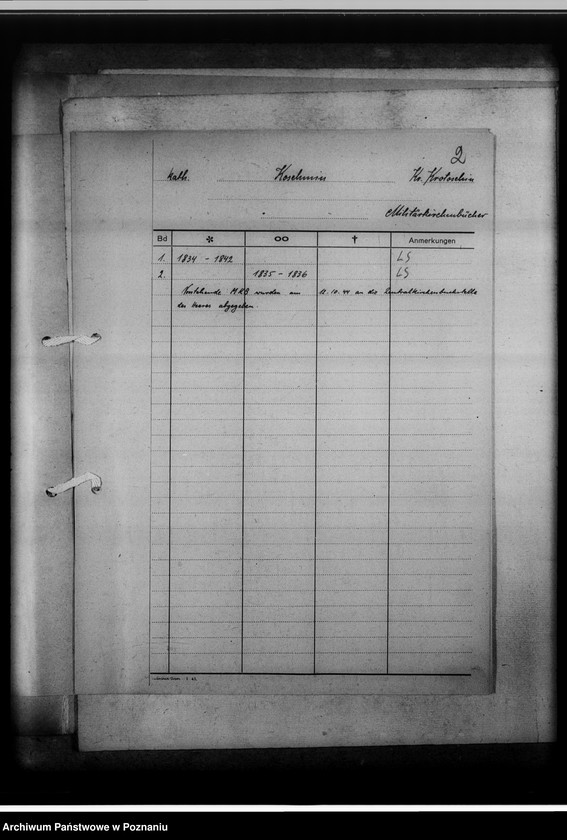 2
kath. Koschmin Kr. Krotoschin
Militärkirchenbücher
Bd * ∞ † Anmerkungen
1. 1834 - 1842 LS
2. 1835 - 1836 LS
Vorstehende MKB wurden am 12.10.44 an die Zentralkirchenbuchstelle
des Heeres abgegeben.
Archiwum Państwowe w Poznaniu